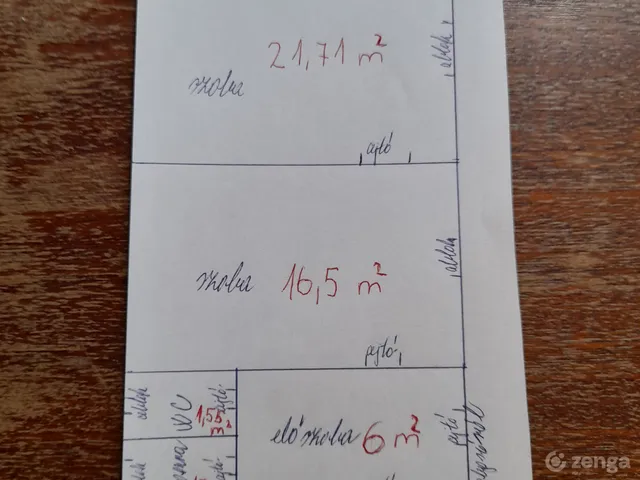 21,71 m²
szoba
ablak
ajtó
szoba
16,5 m²
ablak
ajtó
ablak
WC
1,55
m²
ajtó
előszoba
6 m²
ajtó
zenga